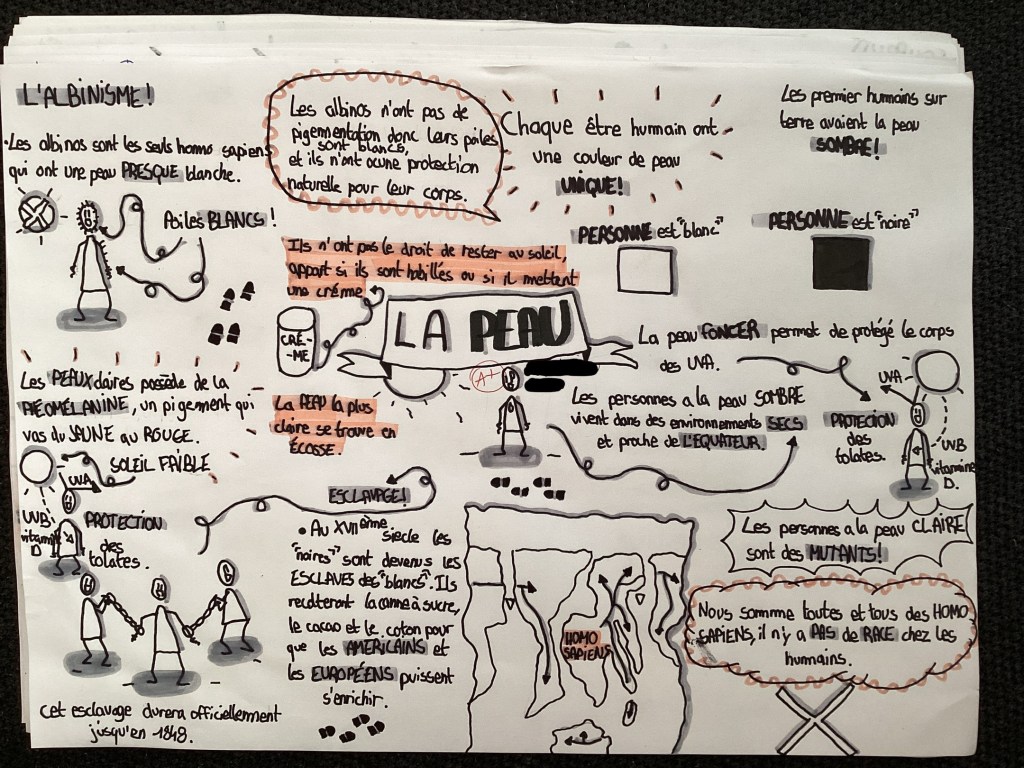 L'ALBINISME!
•Les albinos sont les seuls homo sapiens
qui ont une peau PRESQUE blanche.
Poiles BLANCS!
Les albinos n'ont pas de
pigermentation donc leurs poiles
sont blancs,
et ils n'ont aucune protection
naturelle pour leur corps.
Chaque être humain ont
une couleur de peau
UNIQUE!
Les premier humains sur
terre avaient la peau
SOMBRE!
PERSONNE est "blanc"
PERSONNE est "noire"
Ils n'ont pas le droit de rester au soleil,
appart si ils sont habillés ou si il mettent
une créme
CRÉ-
-ME
LA PEAU
A+
La peau FONCER permet de protégé le corps
des UVA.
UVA
PROTECTION
des
folates.
UVB
vitamine
D.
Les personnes a la peau SOMBRE
vivent dans des environnements SECS
et proche de L'EQUATEUR.
Les PEAUX claires possède de la
PHÉOMÉLANINE, un pigerment qui
vas du JAUNE au ROUGE.
SOLEIL FAIBLE
UVA
UVB
vitamine
D
PROTECTION
des
folates.
La PEAU la plus
claire se trouve en
ÉCOSSE.
ESCLAVAGE!
• Au XVIIème
siecle les
"noires" sont devenus les
ESCLAVES des "blancs". Ils
recolteront la canne à sucre,
le cacao et le coton pour
que les AMERICAINS et
les EUROPÉENS puissent
s'enrichir.
cet esclavage durera officiellement
jusqu'en 1848.
HOMO
SAPIENS
Les personnes a la peau CLAIRE
sont des MUTANTS!
Nous somme toutes et tous des HOMO
SAPIENS, il n'y a PAS de RACE chez les
humains.